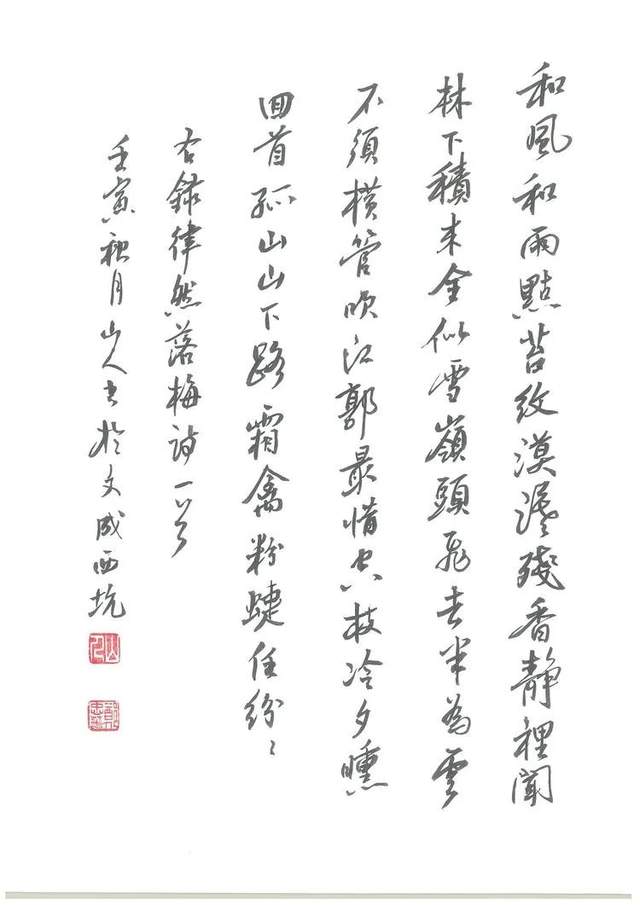 和風和雨點苔紋漠漠殘香靜裡聞
林下積來全似雪嶺頭飛去半為雲
不須橫管吹江郭最惜空枝冷夕曛
回首孤山山下路霜禽粉蜨任紛〻
右錄律然落梅詩一首
壬寅秋月山人書於文成西坑
山人